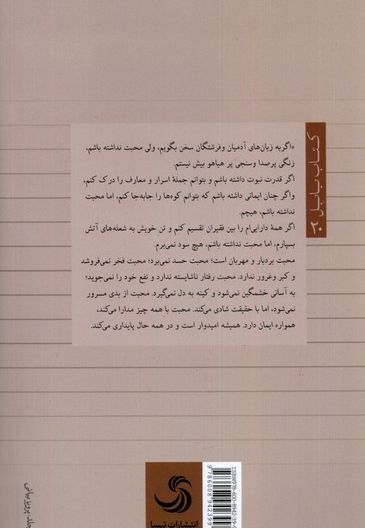 «اگر به زبان‌های آدمیان و فرشتگان سخن بگویم، ولی محبت نداشته باشم،
زنگی پرصدا و سنجی پر هیاهو بیش نیستم.
اگر قدرت نبوت داشته باشم و بتوانم جملهٔ اسرار و معارف را درک کنم،
واگر چنان ایمانی داشته باشم که بتوانم کوه‌ها را جابه‌جا کنم، اما محبت
نداشته باشم، هیچم.
اگر همهٔ دارایی‌ام را بین فقیران تقسیم کنم و تن خویش به شعله‌های آتش
بسپارم، اما محبت نداشته باشم، هیچ سود نمی‌برم.
محبت بردبار و مهربان است؛ محبت حسد نمی‌برد؛ محبت فخر نمی‌فروشد
و کبر و غرور ندارد. محبت رفتار ناشایسته ندارد و نفع خود را نمی‌جوید؛
به آسانی خشمگین نمی‌شود و کینه به دل نمی‌گیرد. محبت از بدی مسرور
نمی‌شود، اما با حقیقت شادی می‌کند. محبت با همه چیز مدارا می‌کند،
همواره ایمان دارد. همیشه امیدوار است و در همه حال پایداری می‌کند.
انتشارات تیسا